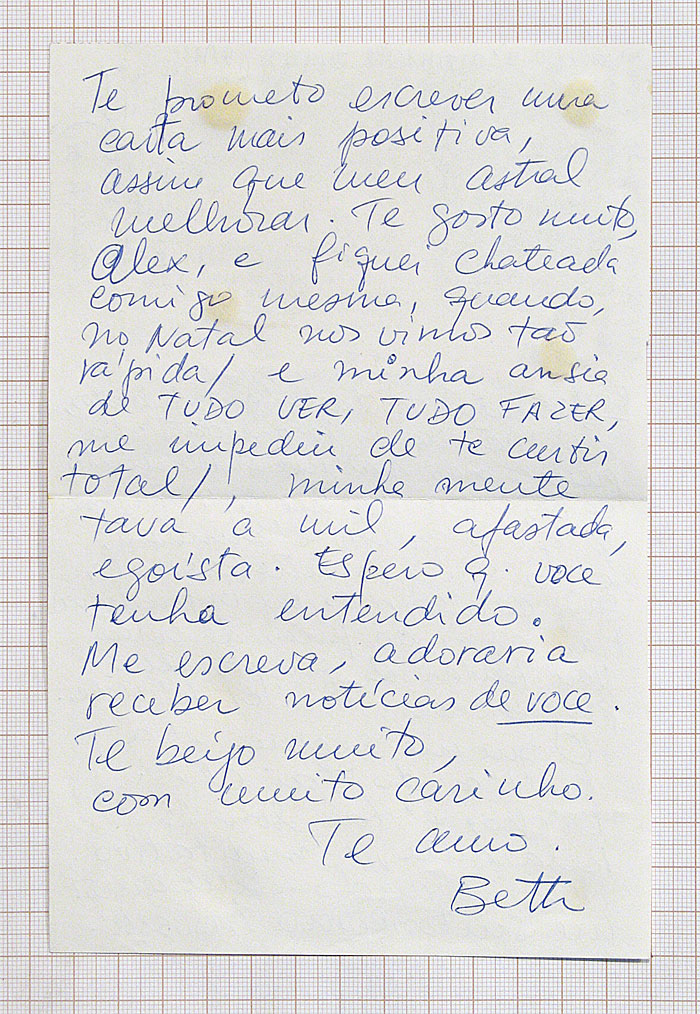 Te prometo escrever uma
carta mais positiva,
assim que meu astral
melhorar. Te gosto muito,
Alex, e fiquei chateada
comigo mesma, quando,
no Natal nos vimos tão
rápida/ e minha ansia
de TUDO VER, TUDO FAZER,
me impediu de te curtir
total/, minha mente
tava a mil, afastada,
egoísta. Espero q. voce
tenha entendido.
Me escreva, adoraria
receber notícias de voce.
Te beijo muito,
com muito carinho.
Te amo.
Beth